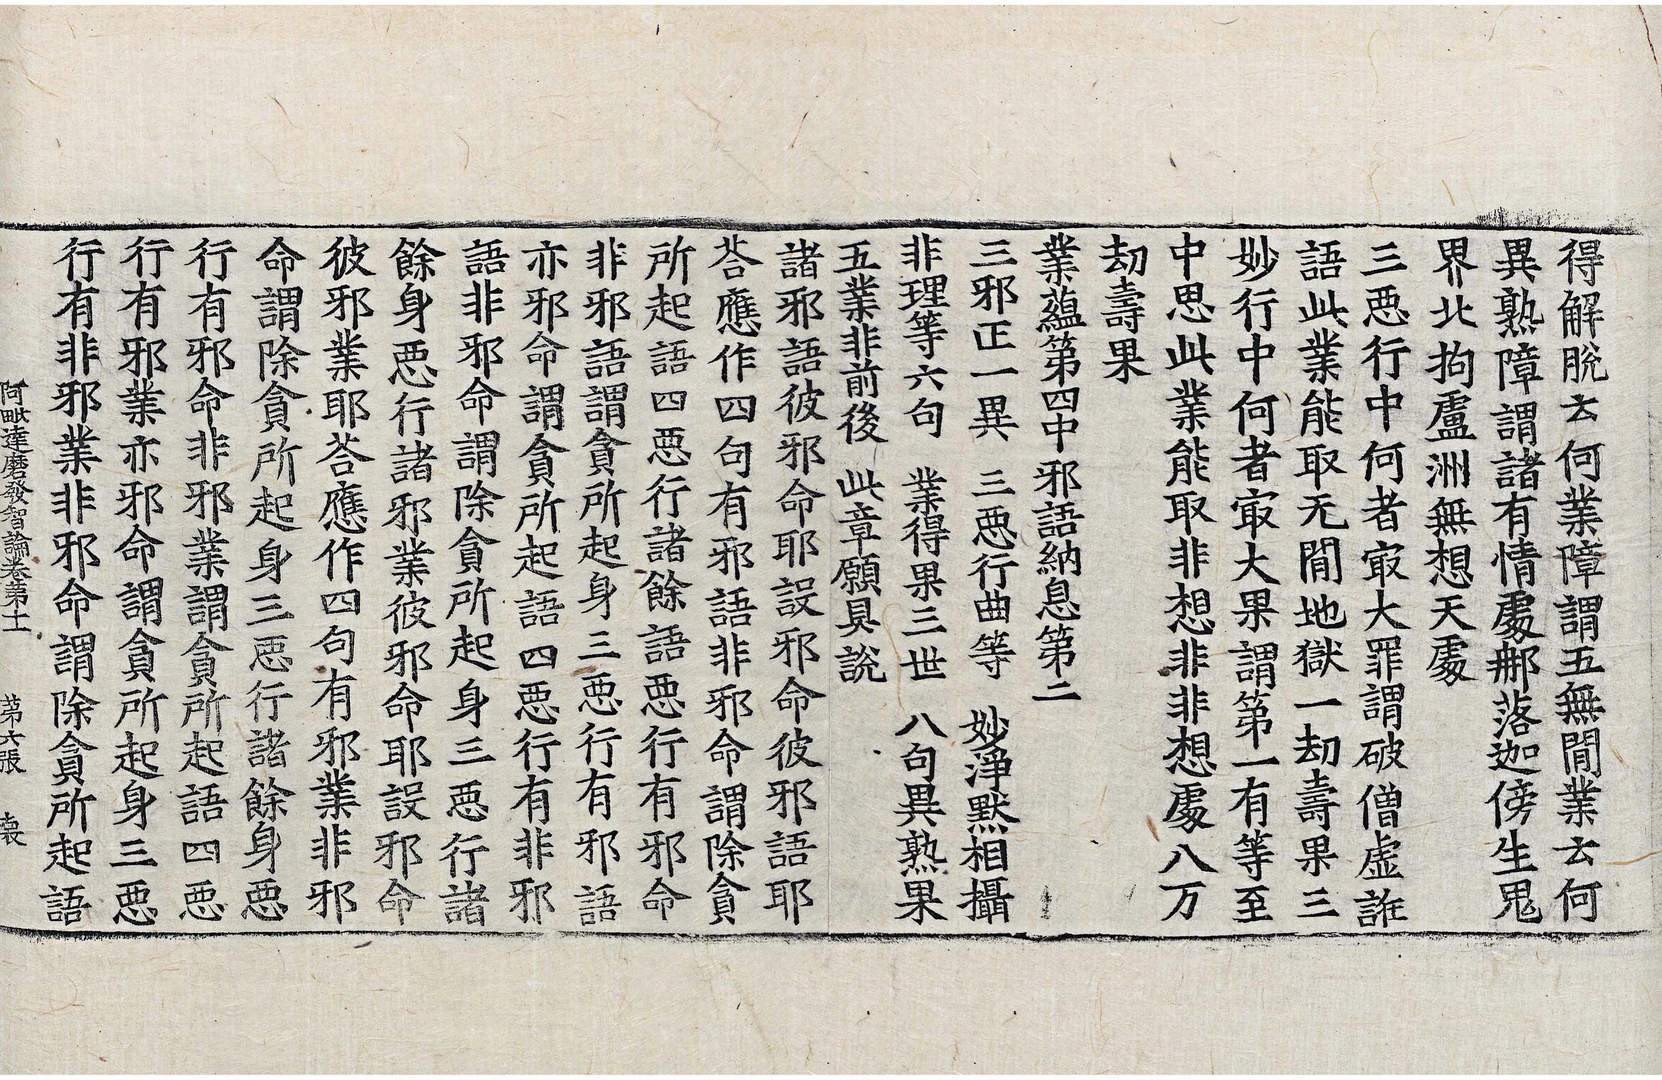 得解脫云何業障謂五無閒業云何
異熟障謂諸有情䖏㮈落迦傍生鬼
界北拘盧洲無想天䖏
三惡行中何者㝡大罪謂破僧虛誑
語此業能取无閒地獄一劫壽果三
妙行中何者㝡大果謂第一有等至
中思此業能取非想非非想䖏八万
劫壽果
業蘊第四中邪語納息第二
三邪正一異　三惡行曲等　妙淨默相攝
非理等六句　業得果三世　八句異熟果
五業非前後　此章願具說
諸邪語彼邪命耶設邪命彼邪語耶
荅應作四句有邪語非邪命謂除貪
所起語四惡行諸餘語惡行有邪命
非邪語謂貪所起身三惡行有邪語
亦邪命謂貪所起語四惡行有非邪
語非邪命謂除貪所起身三惡行諸
餘身惡行諸邪業彼邪命耶設邪命
彼邪業耶荅應作四句有邪業非邪
命謂除貪所起身三惡行諸餘身惡
行有邪命非邪業謂貪所起語四惡
行有邪業亦邪命謂貪所起身三惡
行有非邪業非邪命謂除貪所起語
阿毗達磨發智論卷第十一　第六張